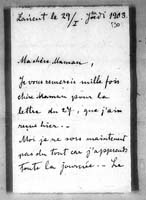 Laurent le 29/I. Jeudi 1903.
Ma chère Maman,
Je vous remercie mille fois
chère Maman pour la
lettre du 27, que j'ai
reçue hier..
Moi je ne sors maintenant
pas du tout car j'apprends
toute la journée... Le